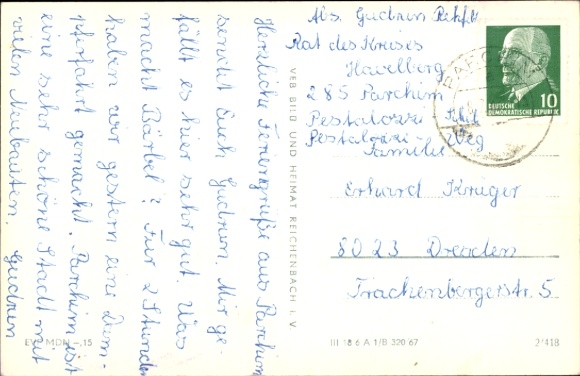 Herzliche Feriengrüße aus Parchim
sendet Euch Gudrun. Mir ge-
fällt es hier sehr gut. Was
macht Bärbel? Für 2 Stunden
haben wir gestern eine Dam-
pferfahrt gemacht. Parchim ist
eine sehr schöne Stadt mit
vielen Neubauten. Gudrun
EVP MDN -,15
VEB BILD UND HEIMAT REICHENBACH i. V.
Abs. Gudrun
Rat des Kreises
Havelberg
285 Parchim
Pestalozzi-
Pestalozzi-Weg
Familie
Erhard Krüger
8023 Dresden
Trachenbergerstr. 5
DEUTSCHE
DEMOKRATISCHE REPUBLIK
10
III 18 6 A 1/B 320 67
2/418